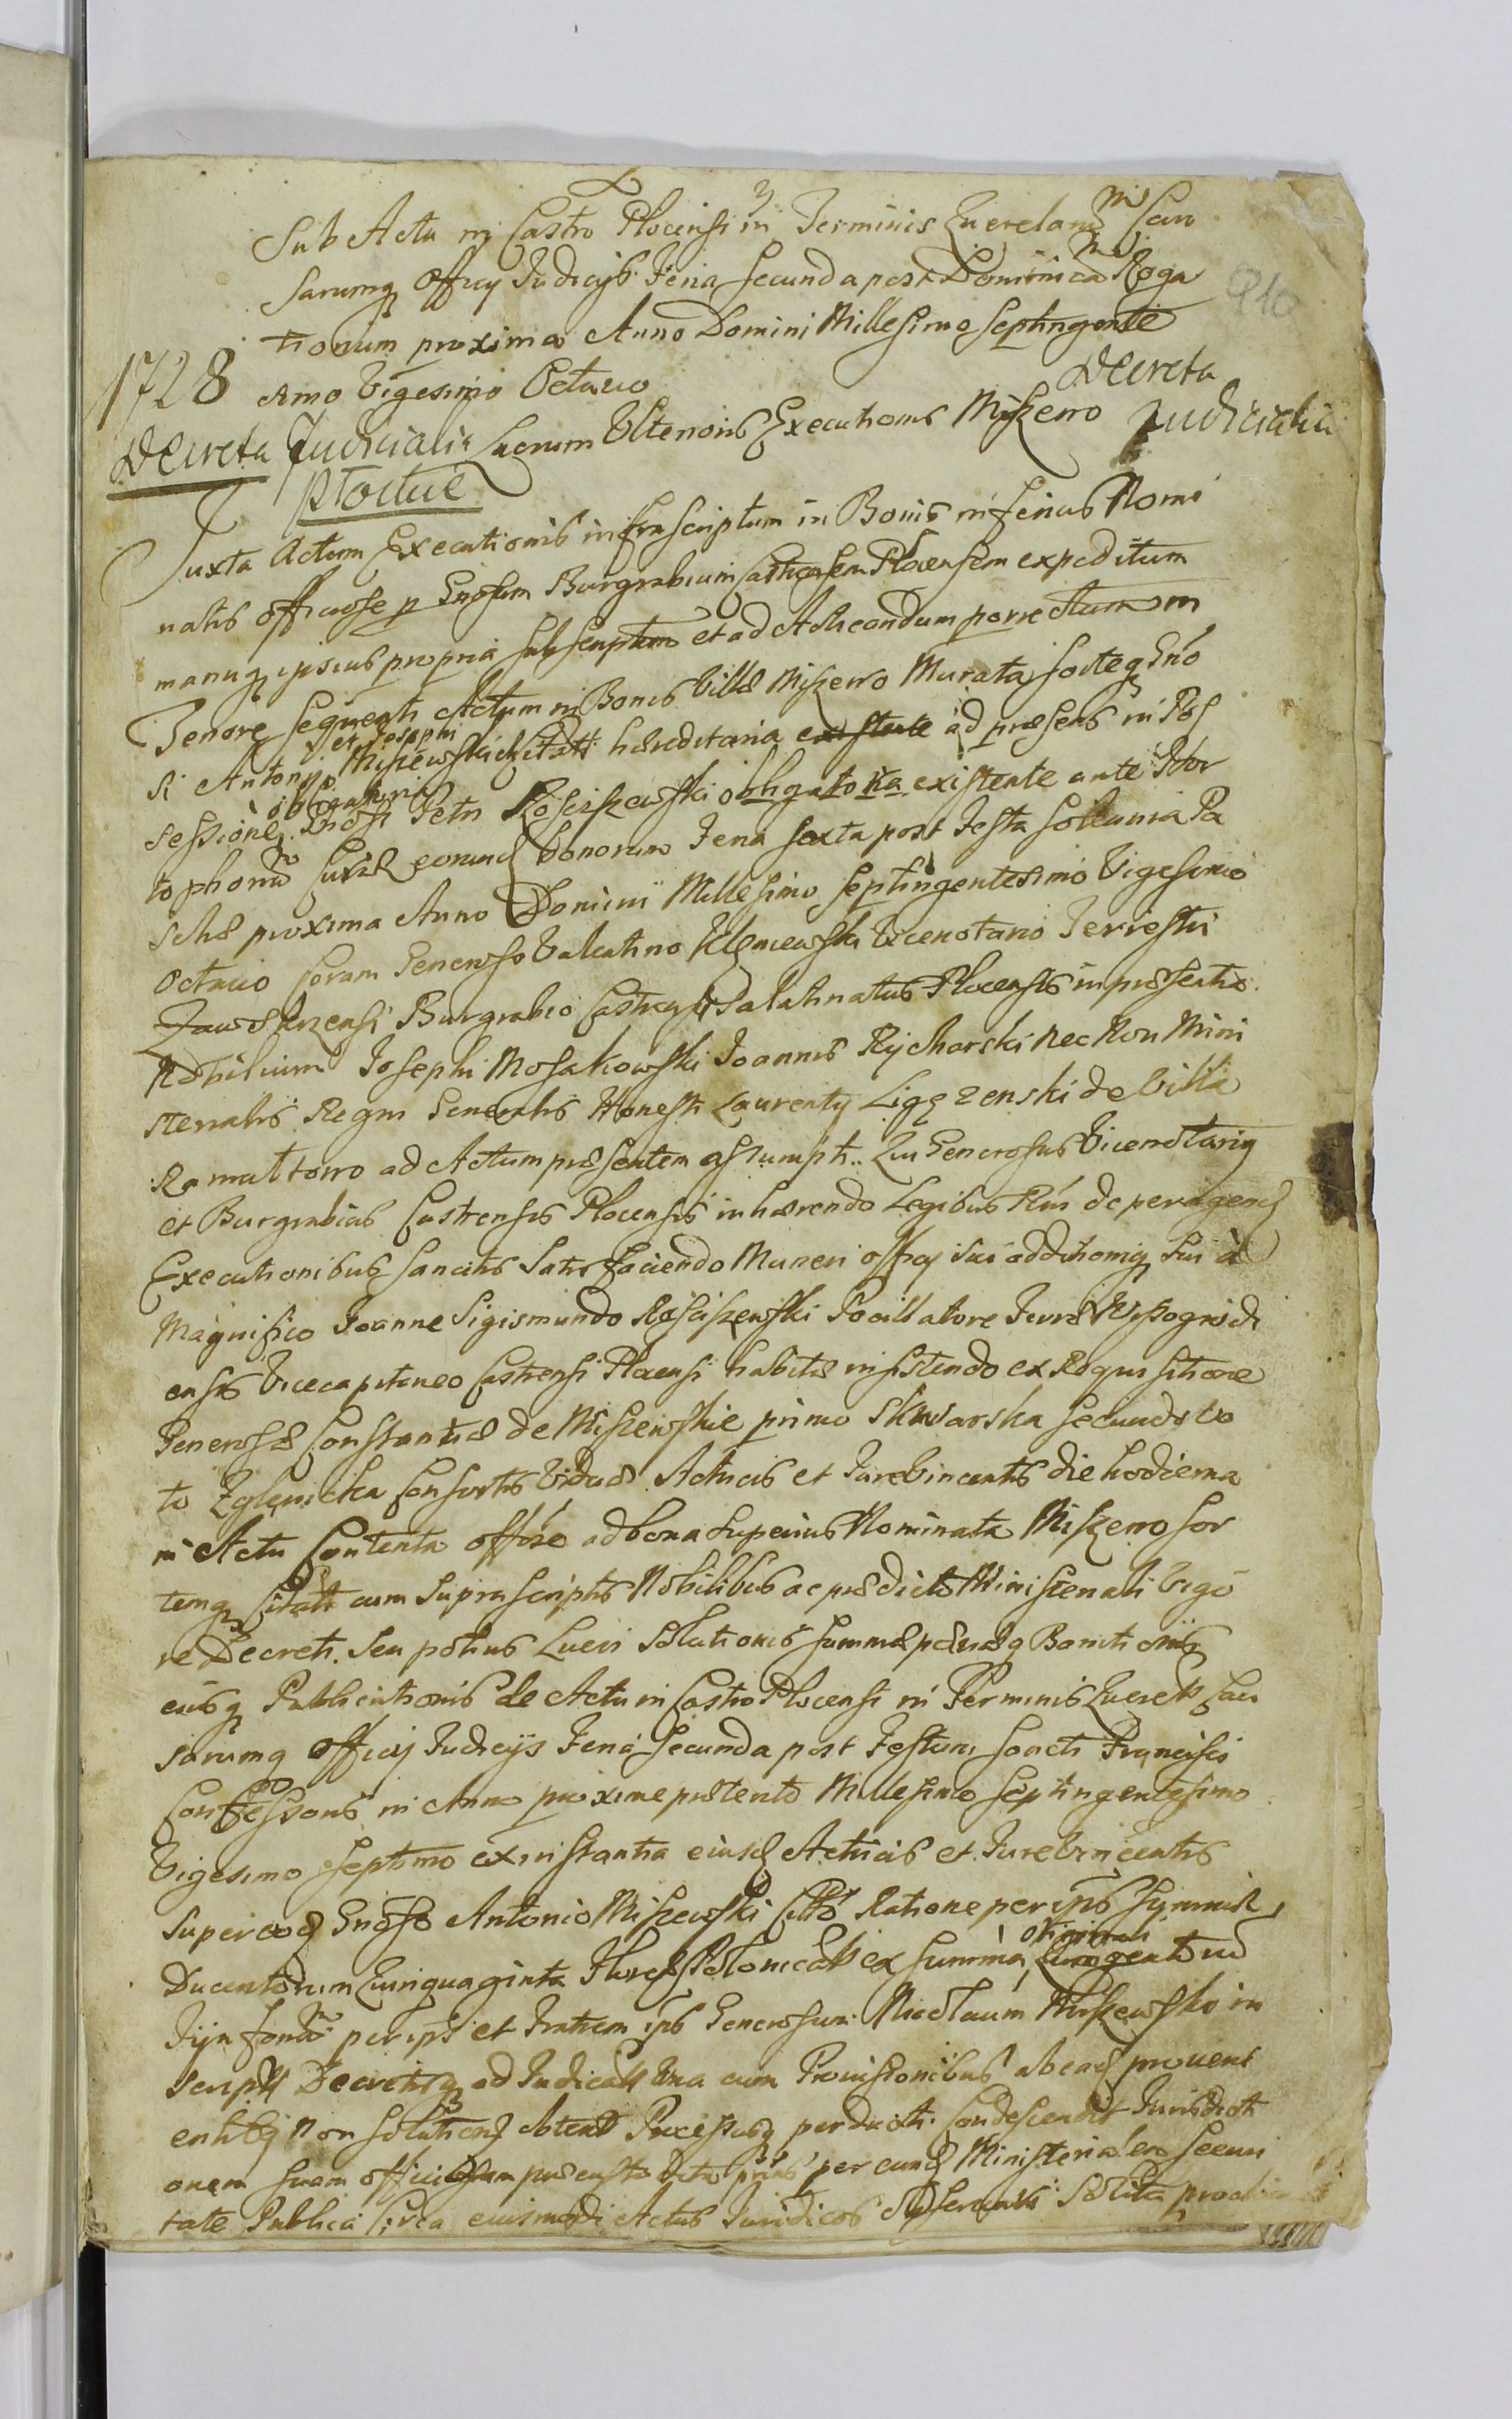 Sub Actu in Castro Plocensi in Terminis Querelarum Cau
sarumq Officy Judicijs Feria Secunda post Dominica Roga
tionum proxima Anno Domini Millesimo Septingente
simo Vigesimo Octavo
1728
910
Decreta
Judicialia
Decreta Judicialia
Płockie
Lucrum Ulterioris Executionis Miszewo
Juxta Actum Executionis infrascriptum in Bonis inferius Nomi
natis officiose p Gnosum Burgrabium Castrensem Plocensem expeditum
manuq ipsius propria subscriptum et ad Acticandum porrectum in
Tenore sequenti Actum in Bonis Villæ Miszewo Murata sorteq Gno
si Antonij et Josephi Miszewskich Citatt hæreditaria existente ad præsens in Pos
sessione obligatoria Gnosi Petri Kosciszewski obligatoria existente ante Hor
to phorum Curiæ eorund bonorum Feria sexta post Festa Solennia Pa
schæ proxima Anno Domini Millesimo Septingentesimo Vigesimo
Octavo Coram Generoso Valentino Klęniewski Vicenotario Terrestri
Zawskrzensi Burgrabio Castrensi Palatinatus Plocensis in præsentia
Nobilium Josephi Mosakowski Joannis Rycharski nec Non Mini
sterialis Regni Generalis Honesti Laurenty Ligęzenski de Villa
Ramultowo ad Actum præsentem assumpt. Qui Generosus Vicenotariq
et Burgrabius Castrensis Plocensis inhærendo Legibus Rni de peragend
Executionibus sancitis Satisfaciendo Muneri officy sui additioniq sui à
Magnifico Joanne Sigismundo Kosciszewski Pocillatore Terræ Wyssogrodi
ensis Vicecapitaneo Castrensi Plocensi habitæ insistendo ex Requisitione
Generosæ Constantiæ de Miszewskie primo Skwarska secundo vo
to Zglenicka Consortis Viduæ Actricis et Jurevincentis die hodierna
in Actu Contenta offose ad bona superius Nominata Miszewo sor
temq Citatt cum suprascriptis Nobilibus ac prædicto Ministeriali Vigo
re Decreti seu potius Lucri Solutionis summæ pænæq Bannitionis
eiusq Publicationis de Actu in Castro Plocensi in Terminis Querell Cau
sarumq Officy Judicijs Feria Secunda post Festum Sancti Francisci
Confessoris in Anno proxime præterito Millesimo Septingentesimo
Vigesimo septimo ex instantia eiusd Actricis et Jurevincentis
super eod Gnoso Antonio Miszewski Citto Ratione per ips summæ
Ducentorum Quinquaginta Floren Polonicall ex summa originali
Tijnfonum per ips et Fratrem ips Generosum Nicolaum Miszewski in
scripts Decretisq ad Judicall Una cum Provisionibus ab ead provent
entibq non solutiend obtent Processuq perducti Condescendit Jurisdicti
onem suam officiosam præmisso ... prius per eund Ministerialem Securi
tate Publica Circa eiusmodi Actus Juridicos observari solita